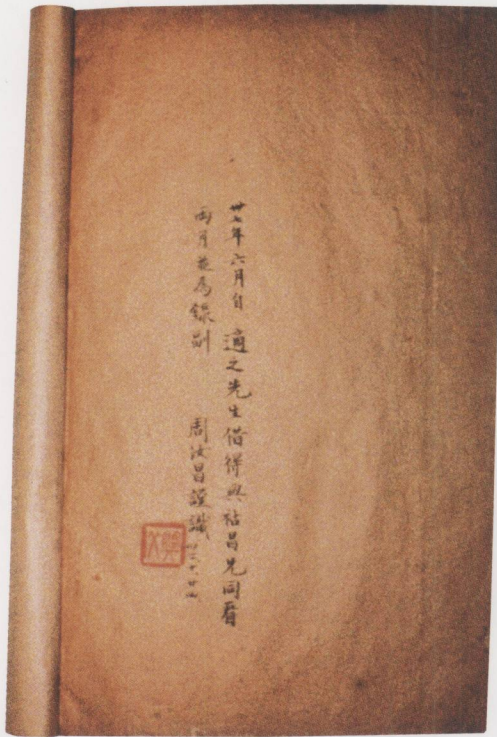 卅七年六月自　適之先生借得與祜昌兄同看
兩月並爲錄副　　周汝昌謹識